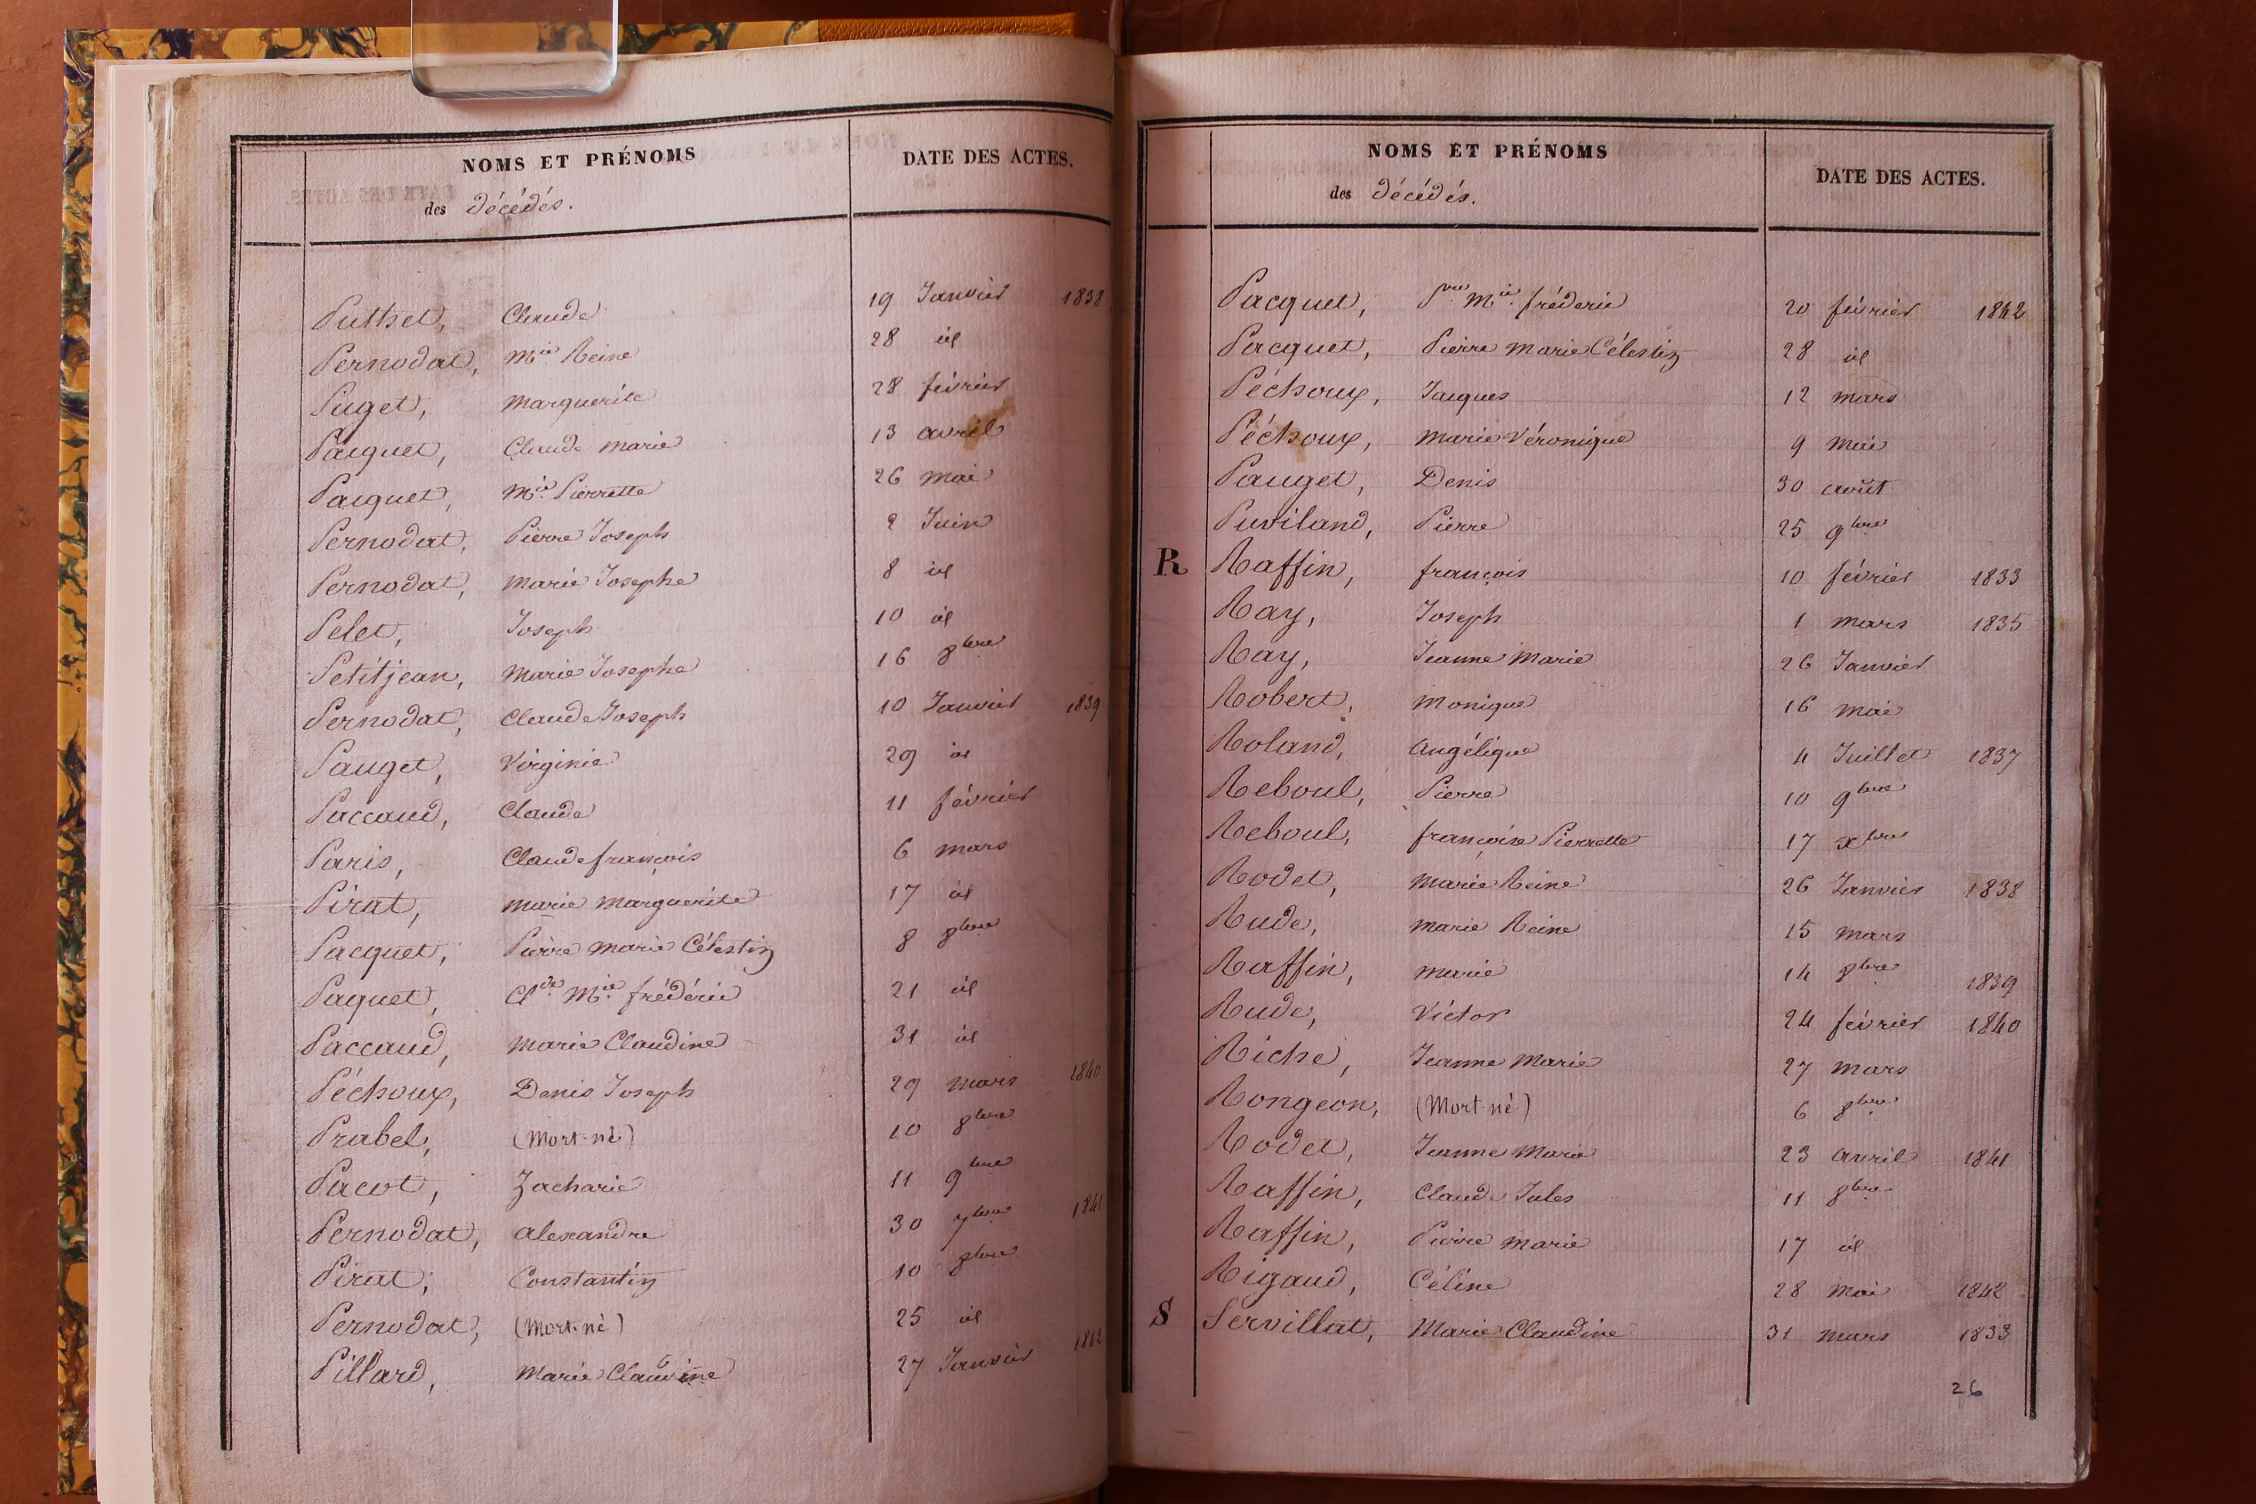 NOMS ET PRÉNOMS
des décédés.
DATE DES ACTES.
Puthet, Claude 19 Janvier 1838
Pernodat, Mie Reine 28 id
Puget, Marguerite 28 février
Pacquet, Claude Marie 13 avril
Pacquet, Mie Pierrette 26 mai
Pernodat, Pierre Joseph 2 Juin
Pernodat, Marie Josephe 8 id
Pelet, Joseph 10 id
Petitjean, Marie Josephe 16 8bre
Pernodat, Claude Joseph 10 Janvier 1839
Pauget, Virginie 29 id
Paccaud, Claude 11 février
Paris, Claude françois 6 mars
Pirat, Marie Marguerite 17 id
Pacquet, Pierre Marie Célestin 8 8bre
Paquet, Clde Mie frédéric 21 id
Paccaud, Marie Claudine 31 id
Péchoux, Denis Joseph 29 mars 1840
Prabel, (Mort-né) 10 8bre
Pacot, Zacharie 11 9bre
Pernodat, Alexandre 30 7bre 1841
Pirat, Constantin 10 8bre
Pernodat, (Mort-né) 25 id
Pillard, Marie Claudine 27 Janvier 1842
NOMS ET PRÉNOMS
des décédés.
DATE DES ACTES.
Pacquet, Pre Mie frédéric 20 février 1842
Pacquet, Pierre Marie Célestin 28 id
Péchoux, Jacques 12 mars
Péchoux, Marie Véronique 9 mai
Pauget, Denis 30 août
Puviland, Pierre 25 9bre
R Raffin, françois 10 février 1833
Ray, Joseph 1 mars 1835
Ray, Jeanne Marie 26 Janvier
Robert, Monique 16 mai
Roland, Angélique 4 Juillet 1837
Reboul, Pierre 10 9bre
Reboul, françoise Pierrette 17 xbre
Rodet, Marie Reine 26 Janvier 1838
Rude, Marie Reine 15 mars
Raffin, Marie 14 8bre 1839
Rude, Victor 24 février 1840
Riche, Jeanne Marie 27 mars
Rongeon, (Mort-né) 6 8bre
Rodet, Jeanne Marie 23 avril 1841
Raffin, Claude Jules 11 8bre
Raffin, Pierre Marie 17 id
Rigaud, Céline 28 mai 1842
S Servillat, Marie Claudine 31 mars 1833
26